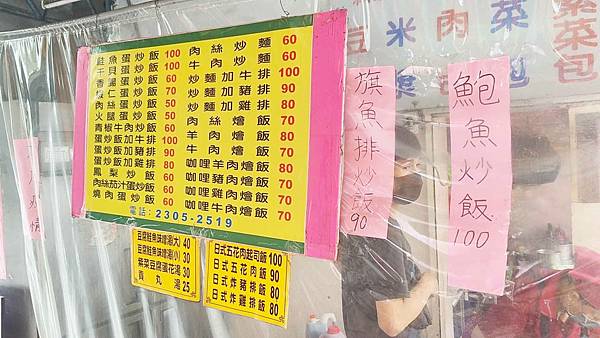 鮭魚蛋炒飯 100
干貝蛋炒飯 100
香腸蛋炒飯 60
蝦仁蛋炒飯 70
肉絲蛋炒飯 50
火腿蛋炒飯 50
青椒牛肉炒飯 60
蛋炒飯加牛排 100
蛋炒飯加豬排 90
蛋炒飯加雞排 80
鳳梨炒飯 60
肉絲茄汁蛋炒飯 60
燒肉蛋炒飯 60
肉絲炒麵 60
牛肉炒麵 60
炒麵加牛排 100
炒麵加豬排 90
炒麵加雞排 80
肉絲燴飯 70
羊肉燴飯 80
牛肉燴飯 70
咖哩羊肉燴飯 80
咖哩豬肉燴飯 70
咖哩雞肉燴飯 70
咖哩牛肉燴飯 70
電話:2305-2519
豆腐鮭魚味噌湯(大) 40
豆腐鮭魚味噌湯(小) 30
紫菜豆腐蛋花湯 30
貢丸湯 25
日式五花肉起司飯 100
日式五花肉飯 90
日式炸豬排飯 80
日式炸雞排飯 80
旗魚排炒飯
90
鮑魚炒飯
100
米
肉
菜
菜包